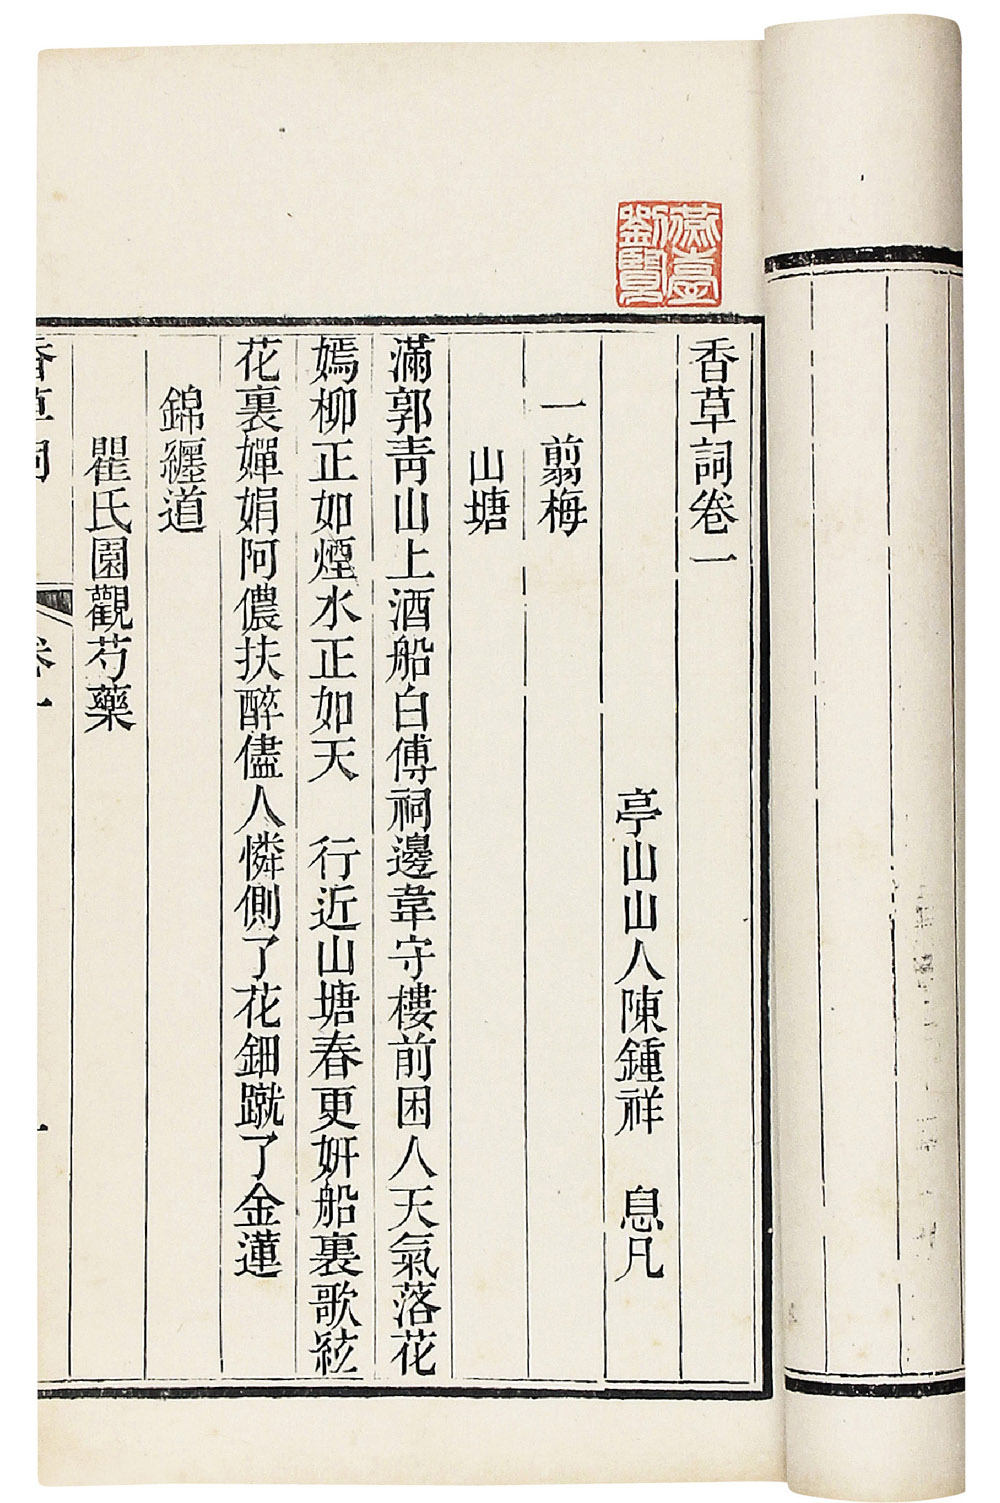 香草詞卷一
亭山山人陳鍾祥　息凡
一翦梅
山塘
滿郭靑山上酒船白傅祠邊韋守樓前困人天氣落花
嫣柳正如煙水正如天　行近山塘春更妍船裏歌絃
花裏嬋娟阿儂扶醉儘人憐側了花鈿蹴了金蓮
錦纏道
瞿氏園觀芍藥
香草詞
卷一
一